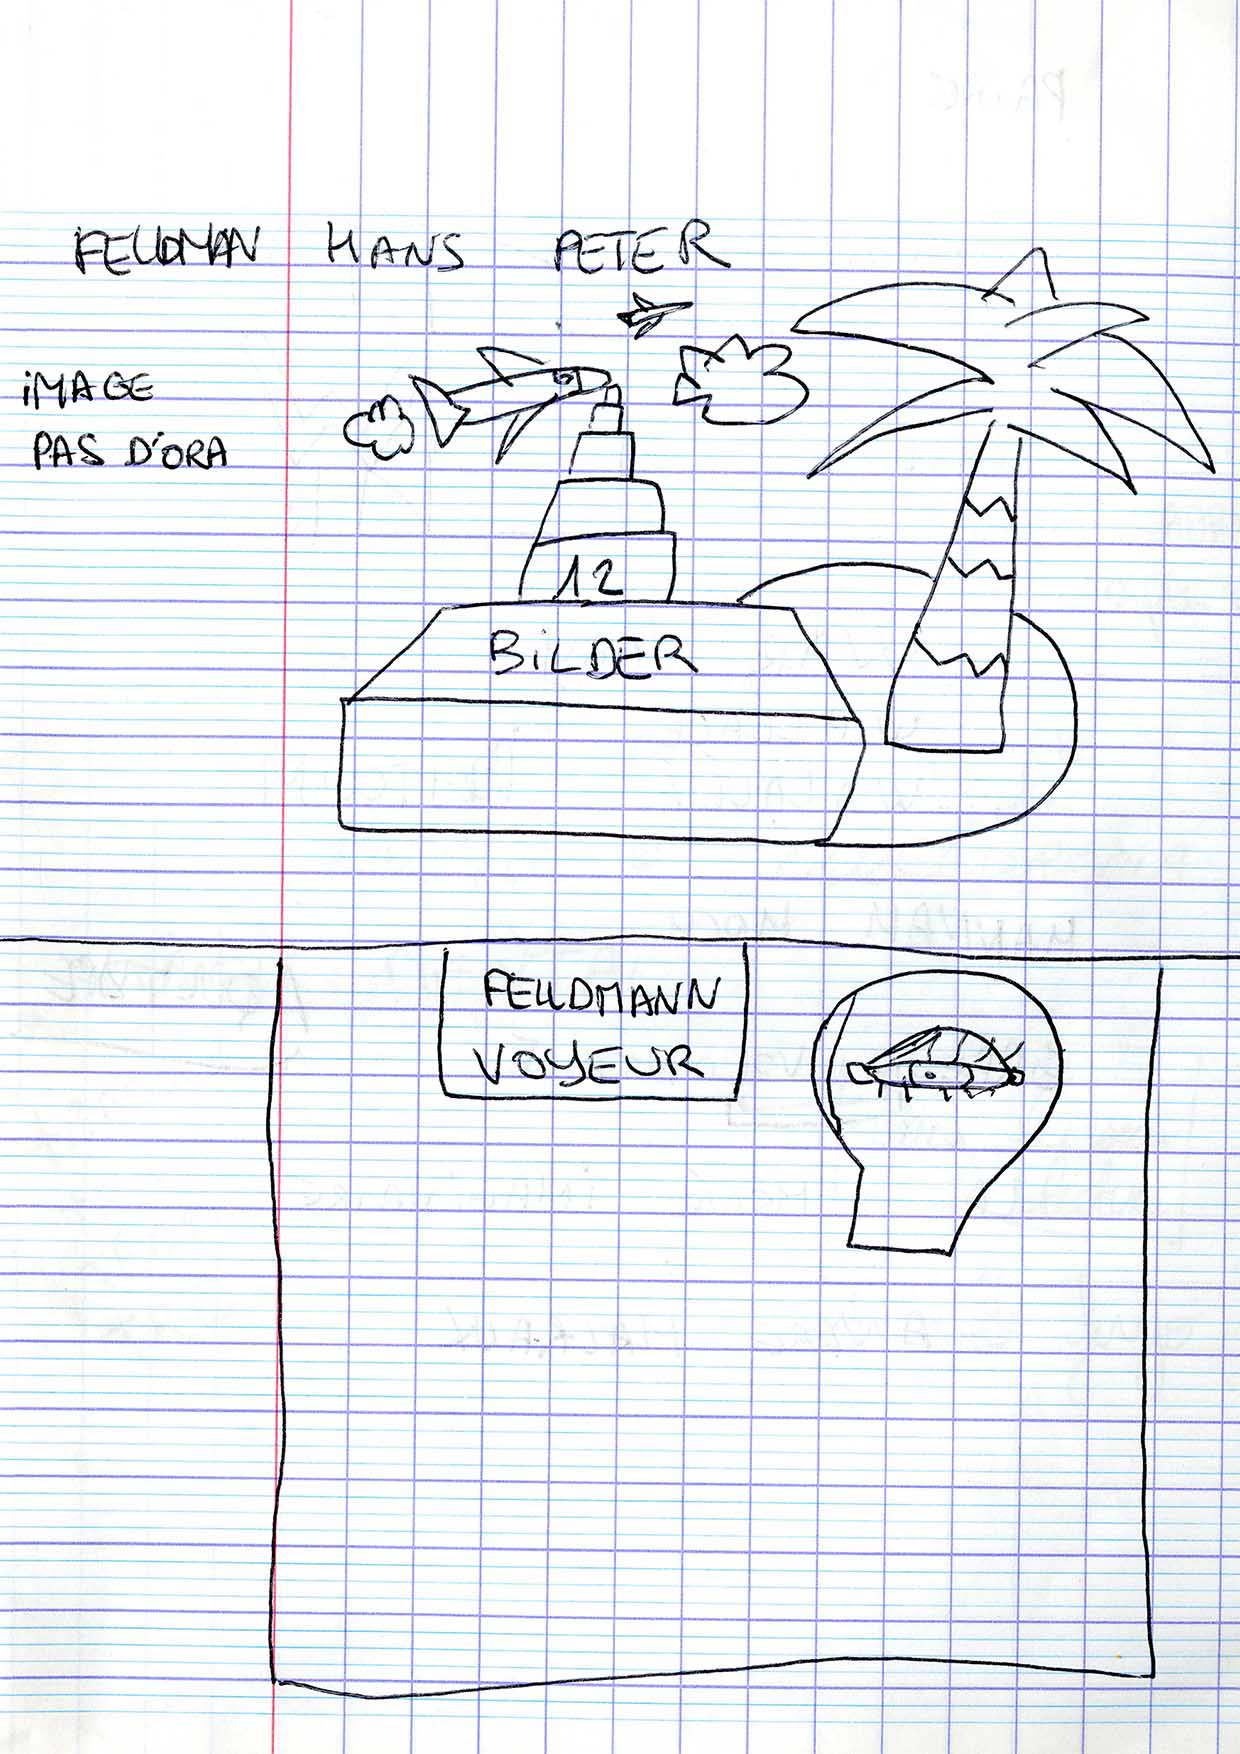 FELLDMAN HANS PETER
iMAGE
PAS D'ORA
12
BiLDER
FELLDMANN
VOYEUR